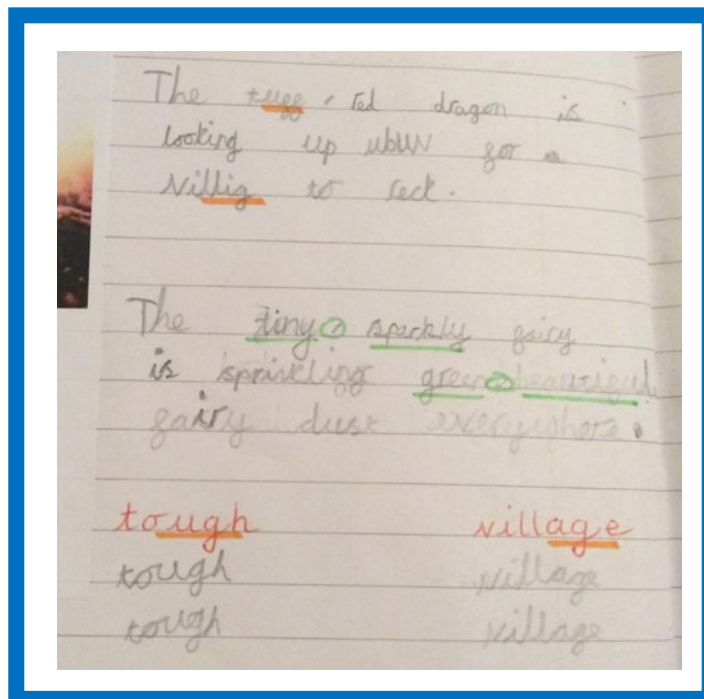 The tugg, red dragon is
looking up for a
villig to
The tiny, sparkly fairy
is sprinkling green, beautiful
fairy dust everywhere.
tough village
tough village
tough village